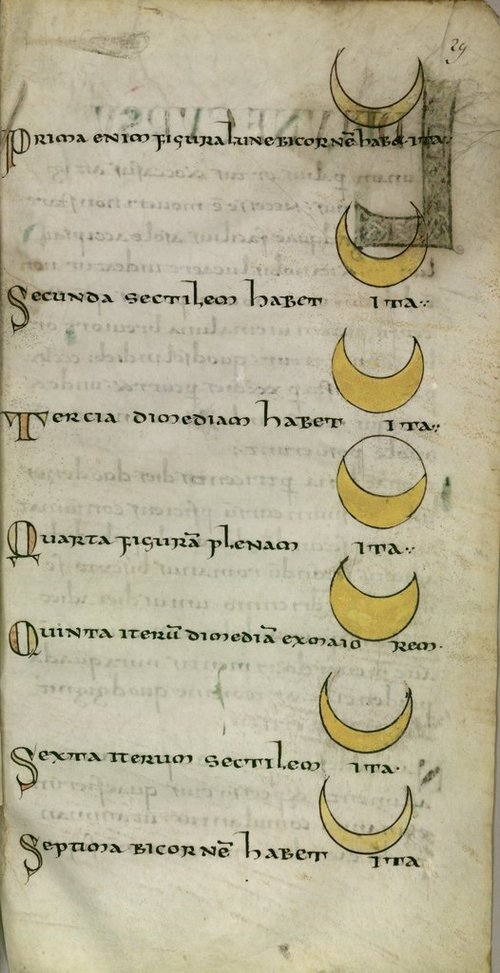 29
Prima enim figura lune bicornē hab& ita
Secunda sectilem habet ita
Tercia dimediam habet ita
Quarta figurā plenam ita
Quinta iterū dimediā ex maiorem
Sexta iterum sectilem ita
Septima bicornē habet ita